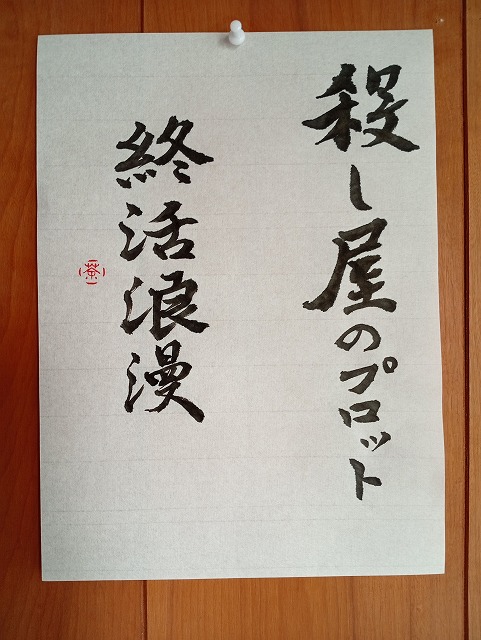 殺し屋のプロット
終活浪漫
茶